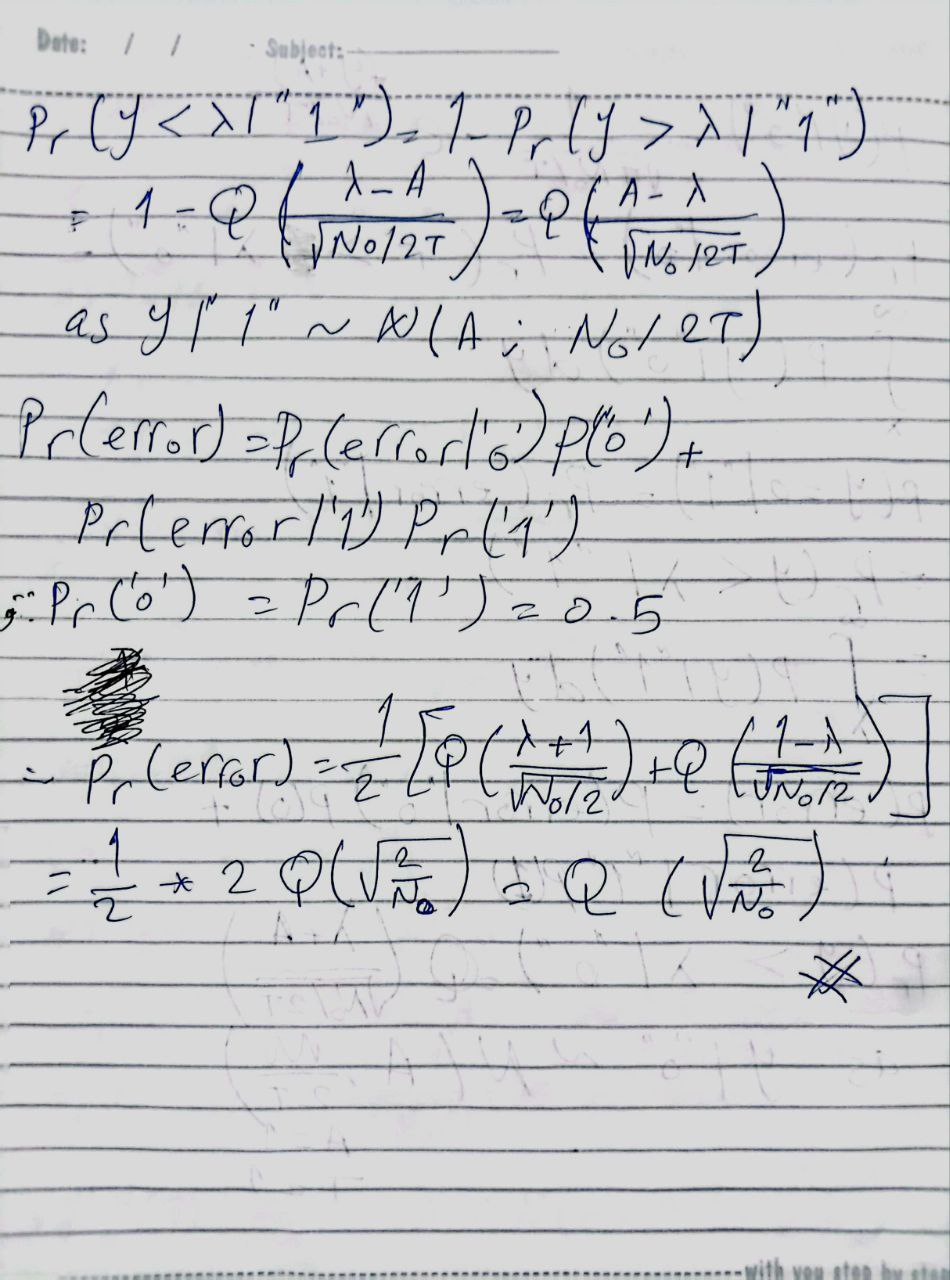 Date: / / Subject:
Pr(y < λ | "1") = 1 - Pr(y > λ | "1")
= 1 - Q((λ - A)/√(No/2T)) = Q((A - λ)/√(No/2T))
as y|"1" ~ N(A ; No/2T)
Pr(error) = Pr(error|'0') P('0') +
Pr(error|'1') Pr('1')
∵ Pr('0') = Pr('1') = 0.5
= Pr(error) = 1/2 [Q((λ+1)/√(No/2)) + Q((1-λ)/√(No/2))]
= 1/2 * 2 Q(√(2/No)) = Q(√(2/No))
with you step by step